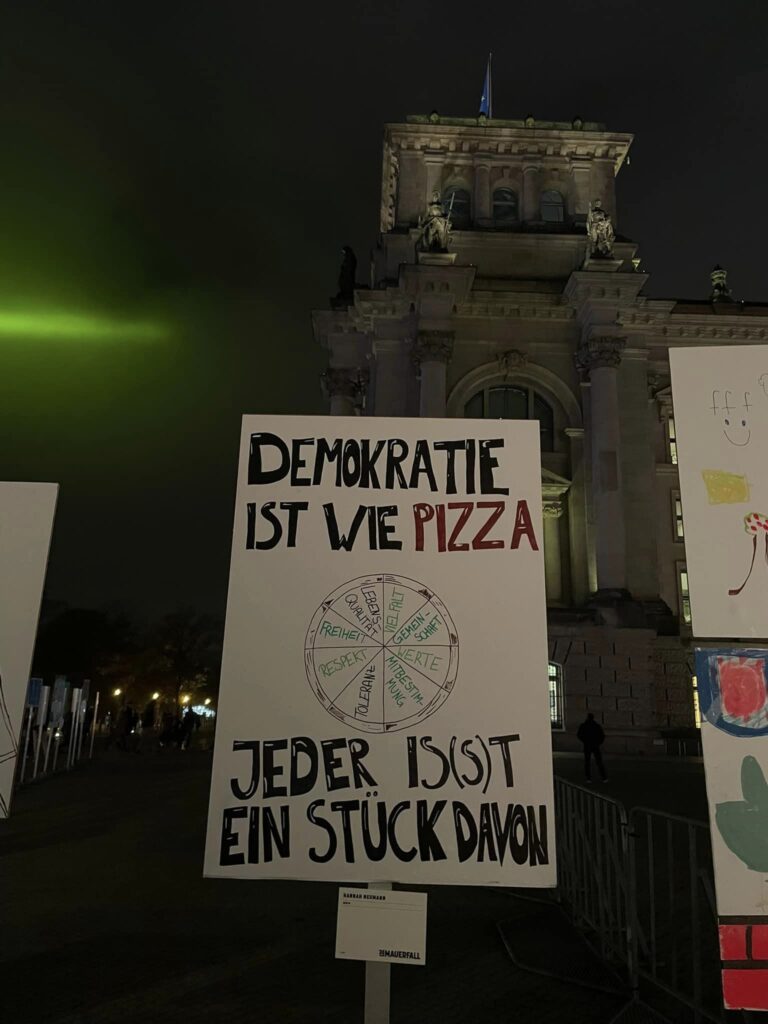 DEMOKRATIE
IST WIE PIZZA
LEBENS-
QUALITÄT
VIELFALT
GEMEIN-
SCHAFT
WERTE
MITBESTIM-
MUNG
TOLERANZ
RESPEKT
FREIHEIT
JEDER IS(S)T
EIN STÜCK DAVON
HANNAH NEUMANN
MAUERFALL